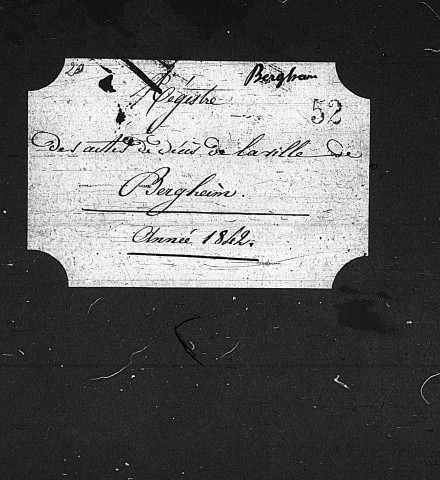 20 Bergheim
Régistre
52
des actes de décès de la ville de
Bergheim.
Année 1842.